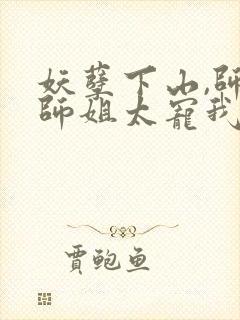 妖孽下山,師
師姐太寵我
賈鲍鱼